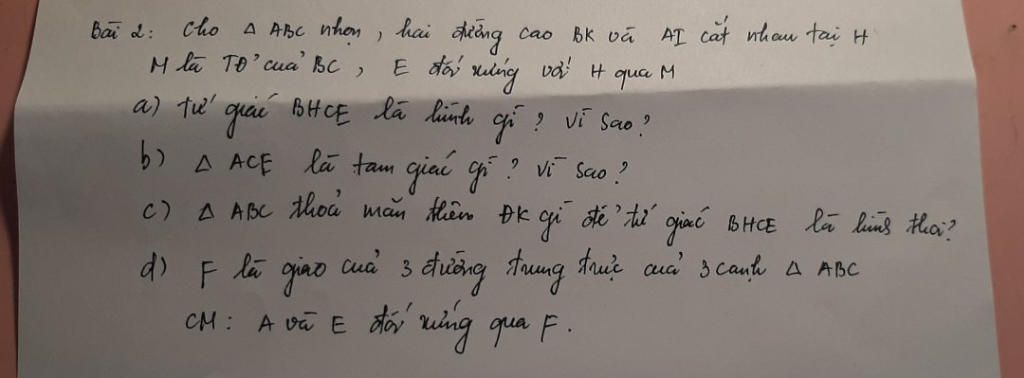 Bài 2: Cho △ ABC nhọn, hai đường cao BK và AI cắt nhau tại H
M là TĐ của BC, E đối xứng với H qua M
a) tứ giác BHCE là hình gì? Vì sao?
b) △ ACE là tam giác gì? Vì sao?
c) △ ABC thoả mãn thêm ĐK gì để tứ giác BHCE là hình thoi?
d) F là giao của 3 đường trung trực của 3 cạnh △ ABC
CM: A và E đối xứng qua F.